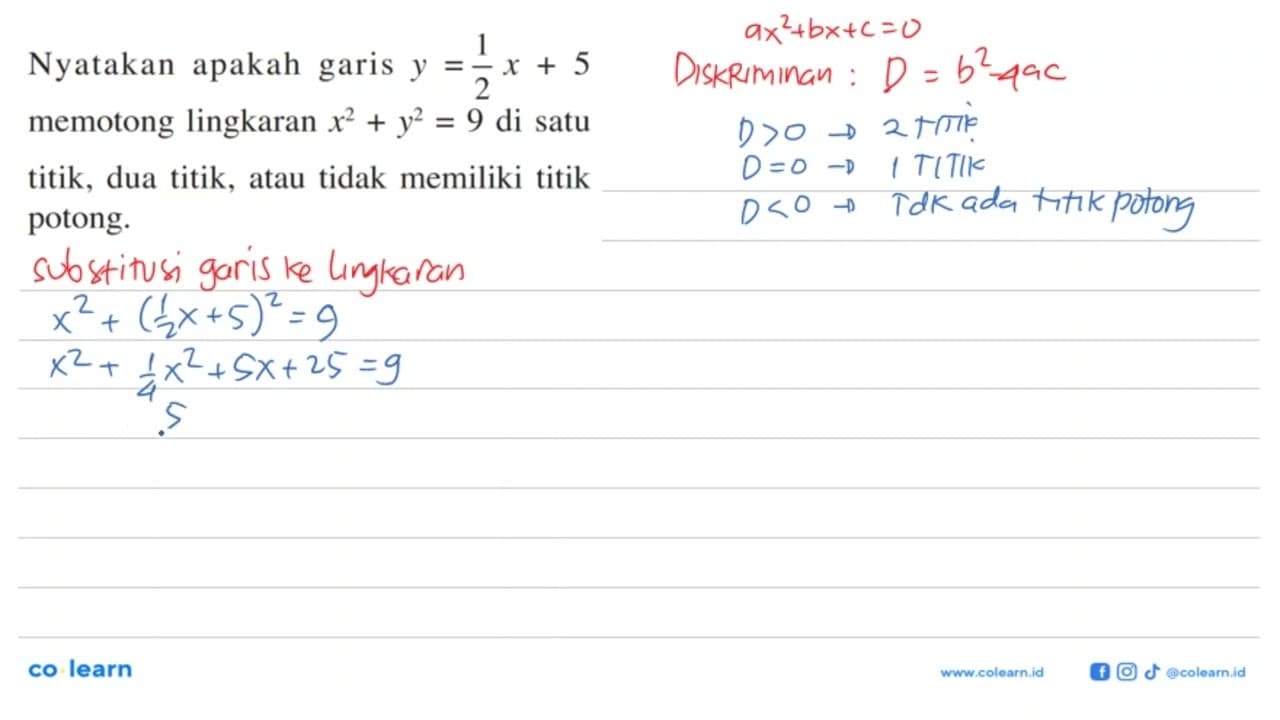 Nyatakan apakah garis y = 1/2 x + 5
memotong lingkaran x² + y² = 9 di satu
titik, dua titik, atau tidak memiliki titik
potong.
ax²+bx+c=0
Diskriminan : D = b²-4ac
D>0 → 2 titik
D=0 → 1 TITIK
D<0 → Tdk ada titik potong
substitusi garis ke lingkaran
x² + (1/2x+5)² = 9
x² + 1/4x² + 5x + 25 = 9
5
co learn
www.colearn.id
@colearn.id